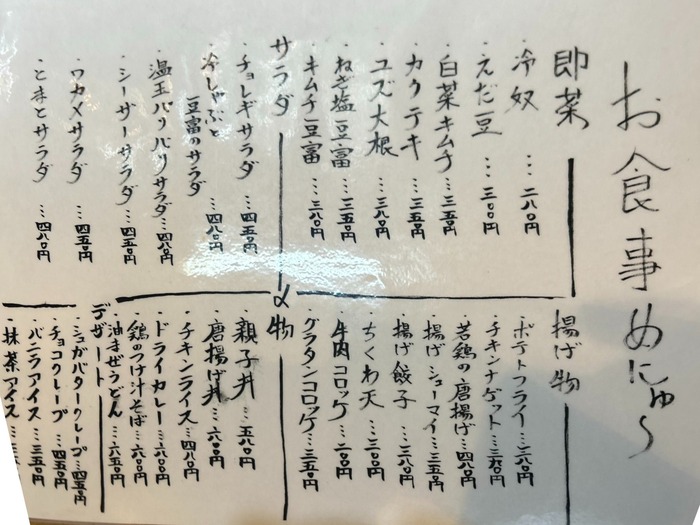 お食事めにゅ〜
即菜
・冷奴 … 二八〇円
・えだ豆 … 三〇〇円
・白菜キムチ … 三五〇円
・カクテキ … 三五〇円
・ユズ大根 … 三八〇円
・ねぎ塩豆富 … 三五〇円
・キムチ豆富 … 三八〇円
サラダ
・チョレギサラダ … 四五〇円
・冷しゃぶと
豆富のサラダ … 四八〇円
・温玉パリパリサラダ … 四八〇円
・シーザーサラダ … 四五〇円
・ワカメサラダ … 四五〇円
・とまとサラダ … 四八〇円
揚げ物
・ポテトフライ … 三八〇円
・チキンナゲット … 三五〇円
・若鶏の唐揚げ … 四八〇円
・揚げシューマイ … 三五〇円
・揚げ餃子 … 三八〇円
・ちくわ天 … 二二〇円
・牛肉コロッケ … 二〇〇円
・グラタンコロッケ … 三五〇円
〆物
・親子丼 … 五八〇円
・唐揚げ丼 … 六〇〇円
・チキンライス … 四八〇円
・ドライカレー … 六〇〇円
・鶏のつけ汁そば … 六〇〇円
・油まぜうどん … 六五〇円
デザート
・シュガバタークレープ … 四五〇円
・チョコクレープ … 四五〇円
・バニラアイス … 三五〇円
・抹茶アイス …